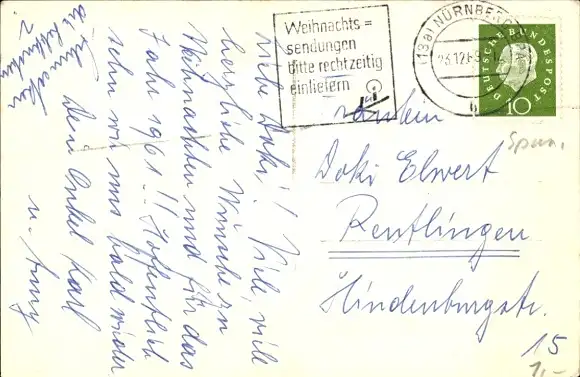 Liebe Doki! Viele, viele
herzliche Wünsche zu
Weihnachten und für das
Jahr 1961!! Hoffentlich
sehn wir uns bald wieder.
Dein Onkel Karl
u.
Weihnachts=
sendungen
bitte rechtzeitig
einliefern
(13a) NÜRNBERG
23.12.6
b
DEUTSCHE BUNDESPOST
10
Fräulein
Doki Elwert
Reutlingen
Hindenburgstr.
15
1,-